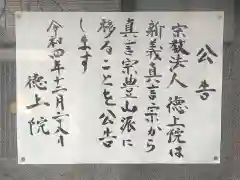 公告
宗教法人 徳上院は
新義真言宗から
真言宗豊山派に
移ることを公告
します
令和四年十二月二八日
徳上院